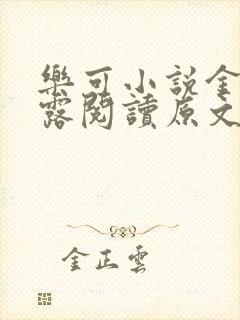 樂可小說金
露閱讀原文
金正雲